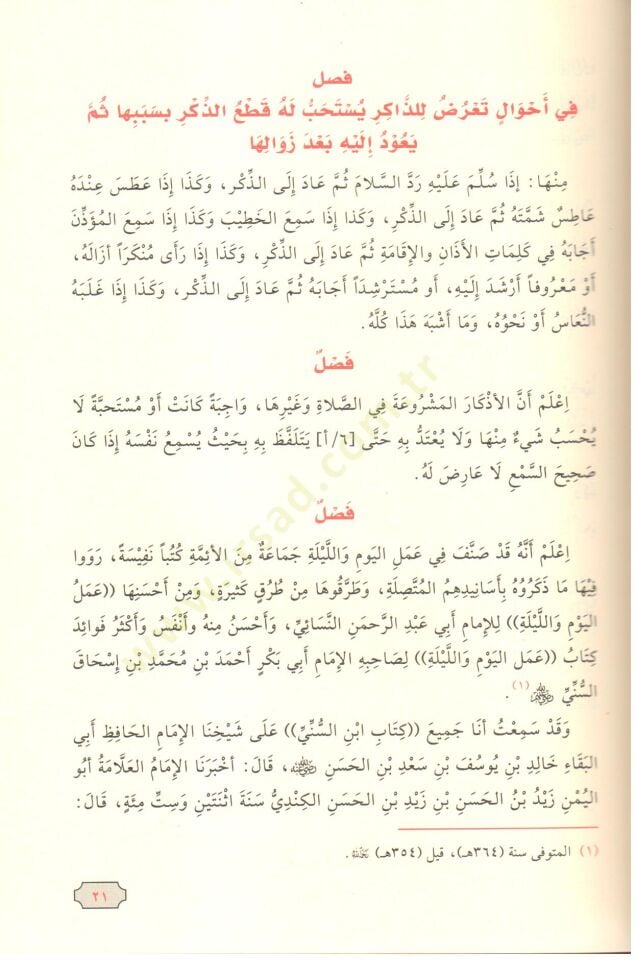 فصل
فِي أَحْوَالٍ تَعْرُضُ لِلذَّاكِرِ يُسْتَحَبُّ لَهُ قَطْعُ الذِّكْرِ بِسَبَبِهَا ثُمَّ
يَعُوْدُ إِلَيْهِ بَعْدَ زَوَالِهَا
مِنْهَا: إِذَا سُلِّمَ عَلَيْهِ رَدَّ السَّلَامَ ثُمَّ عَادَ إِلَى الذِّكْرِ، وَكَذَا إِذَا عَطَسَ عِنْدَهُ
عَاطِسٌ شَمَّتَهُ ثُمَّ عَادَ إِلَى الذِّكْرِ، وَكَذَا إِذَا سَمِعَ الخَطِيْبَ وَكَذَا إِذَا سَمِعَ المُؤَذِّنَ
أَجَابَهُ فِي كَلِمَاتِ الأَذَانِ والإِقَامَةِ ثُمَّ عَادَ إِلَى الذِّكْرِ، وَكَذَا إِذَا رَأَى مُنْكَرَاً أزَالَهُ،
أَوْ مَعْرُوفاً أَرْشَدَ إِلَيْهِ، أَو مُسْتَرْشِدَاً أجَابَهُ ثُمَّ عَادَ إِلَى الذِّكْرِ، وَكَذَا إِذَا غَلَبَهُ
النُّعَاسُ أَوْ نَحْوُهُ، وَمَا أَشْبَهَ هَذَا كُلَّهُ.
فَصْلٌ
اِعْلَمْ أَنَّ الأَذْكَارَ المَشْرُوعَةَ فِي الصَّلاةِ وَغَيْرِهَا، وَاجِبَةً كَانَتْ أَوْ مُسْتَحبَّةً لَا
يُحْسَبُ شَيْءٌ مِنْهَا وَلَا يُعْتَدُّ بِهِ حَتَّى [٦/أ] يَتَلَفَّظَ بِهِ بِحَيْثُ يُسْمِعُ نَفْسَهُ إِذَا كَانَ
صَحِيحَ السَّمْعِ لَا عَارِضَ لَهُ.
فَصْلٌ
اِعْلَمْ أَنَّهُ قَدْ صَنَّفَ فِي عَمَلِ اليَومِ وَاللَّيْلَةِ جَمَاعَةٌ مِنَ الأَئِمَّةِ كُتُبَاً نَفِيْسَةً، رَوَوا
فِيْهَا مَا ذَكَرُوْهُ بِأَسَانِيدِهِمُ المُتَّصِلَةِ، وَطَرَّقُوهَا مِنْ طُرُقٍ كَثِيرَةٍ، وَمِنْ أَحْسَنِهَا ((عَمَلُ
اليَوْمِ وَاللَّيْلَةِ)) لِلإِمَامِ أَبِي عَبْدِ الرَّحمَنِ النَّسَائِيِّ، وَأَحْسَنُ مِنهُ وأَنْفَسُ وَأَكْثَرُ فَوائِدَ
كِتَابُ ((عَمَلِ اليَوْمِ وَاللَّيْلَةِ)) لِصَاحِبِهِ الإِمَامِ أَبِي بَكْرٍ أَحْمَدَ بْنِ مُحَمَّدِ بْنِ إِسْحَاقَ
السُّنِّيِّ ﵁ (١).
وَقَدْ سَمِعْتُ أنَا جَمِيعَ ((كِتَابِ ابْنِ السُّنِّيِّ)) عَلَى شَيْخِنَا الإِمَامِ الحَافِظِ أَبِي
البَقَاءِ خَالِدِ بْنِ يُوسُفَ بْنِ سَعْدِ بْنِ الحَسَنِ ﵁، قَالَ: أَخْبَرَنَا الإِمَامُ العَلَّامَةُ أبُو
اليُمْنِ زَيْدُ بْنُ الحَسَنِ بْنِ زَيْدِ بْنِ الحَسَنِ الكِنْدِيُّ سَنَةَ اثْنَتَيْنِ وَسِتِّ مِئَةٍ، قَالَ:
(١) المتوفى سنة (٣٦٤هـ)، قيل (٣٥٤هـ) ﵀.
٢١